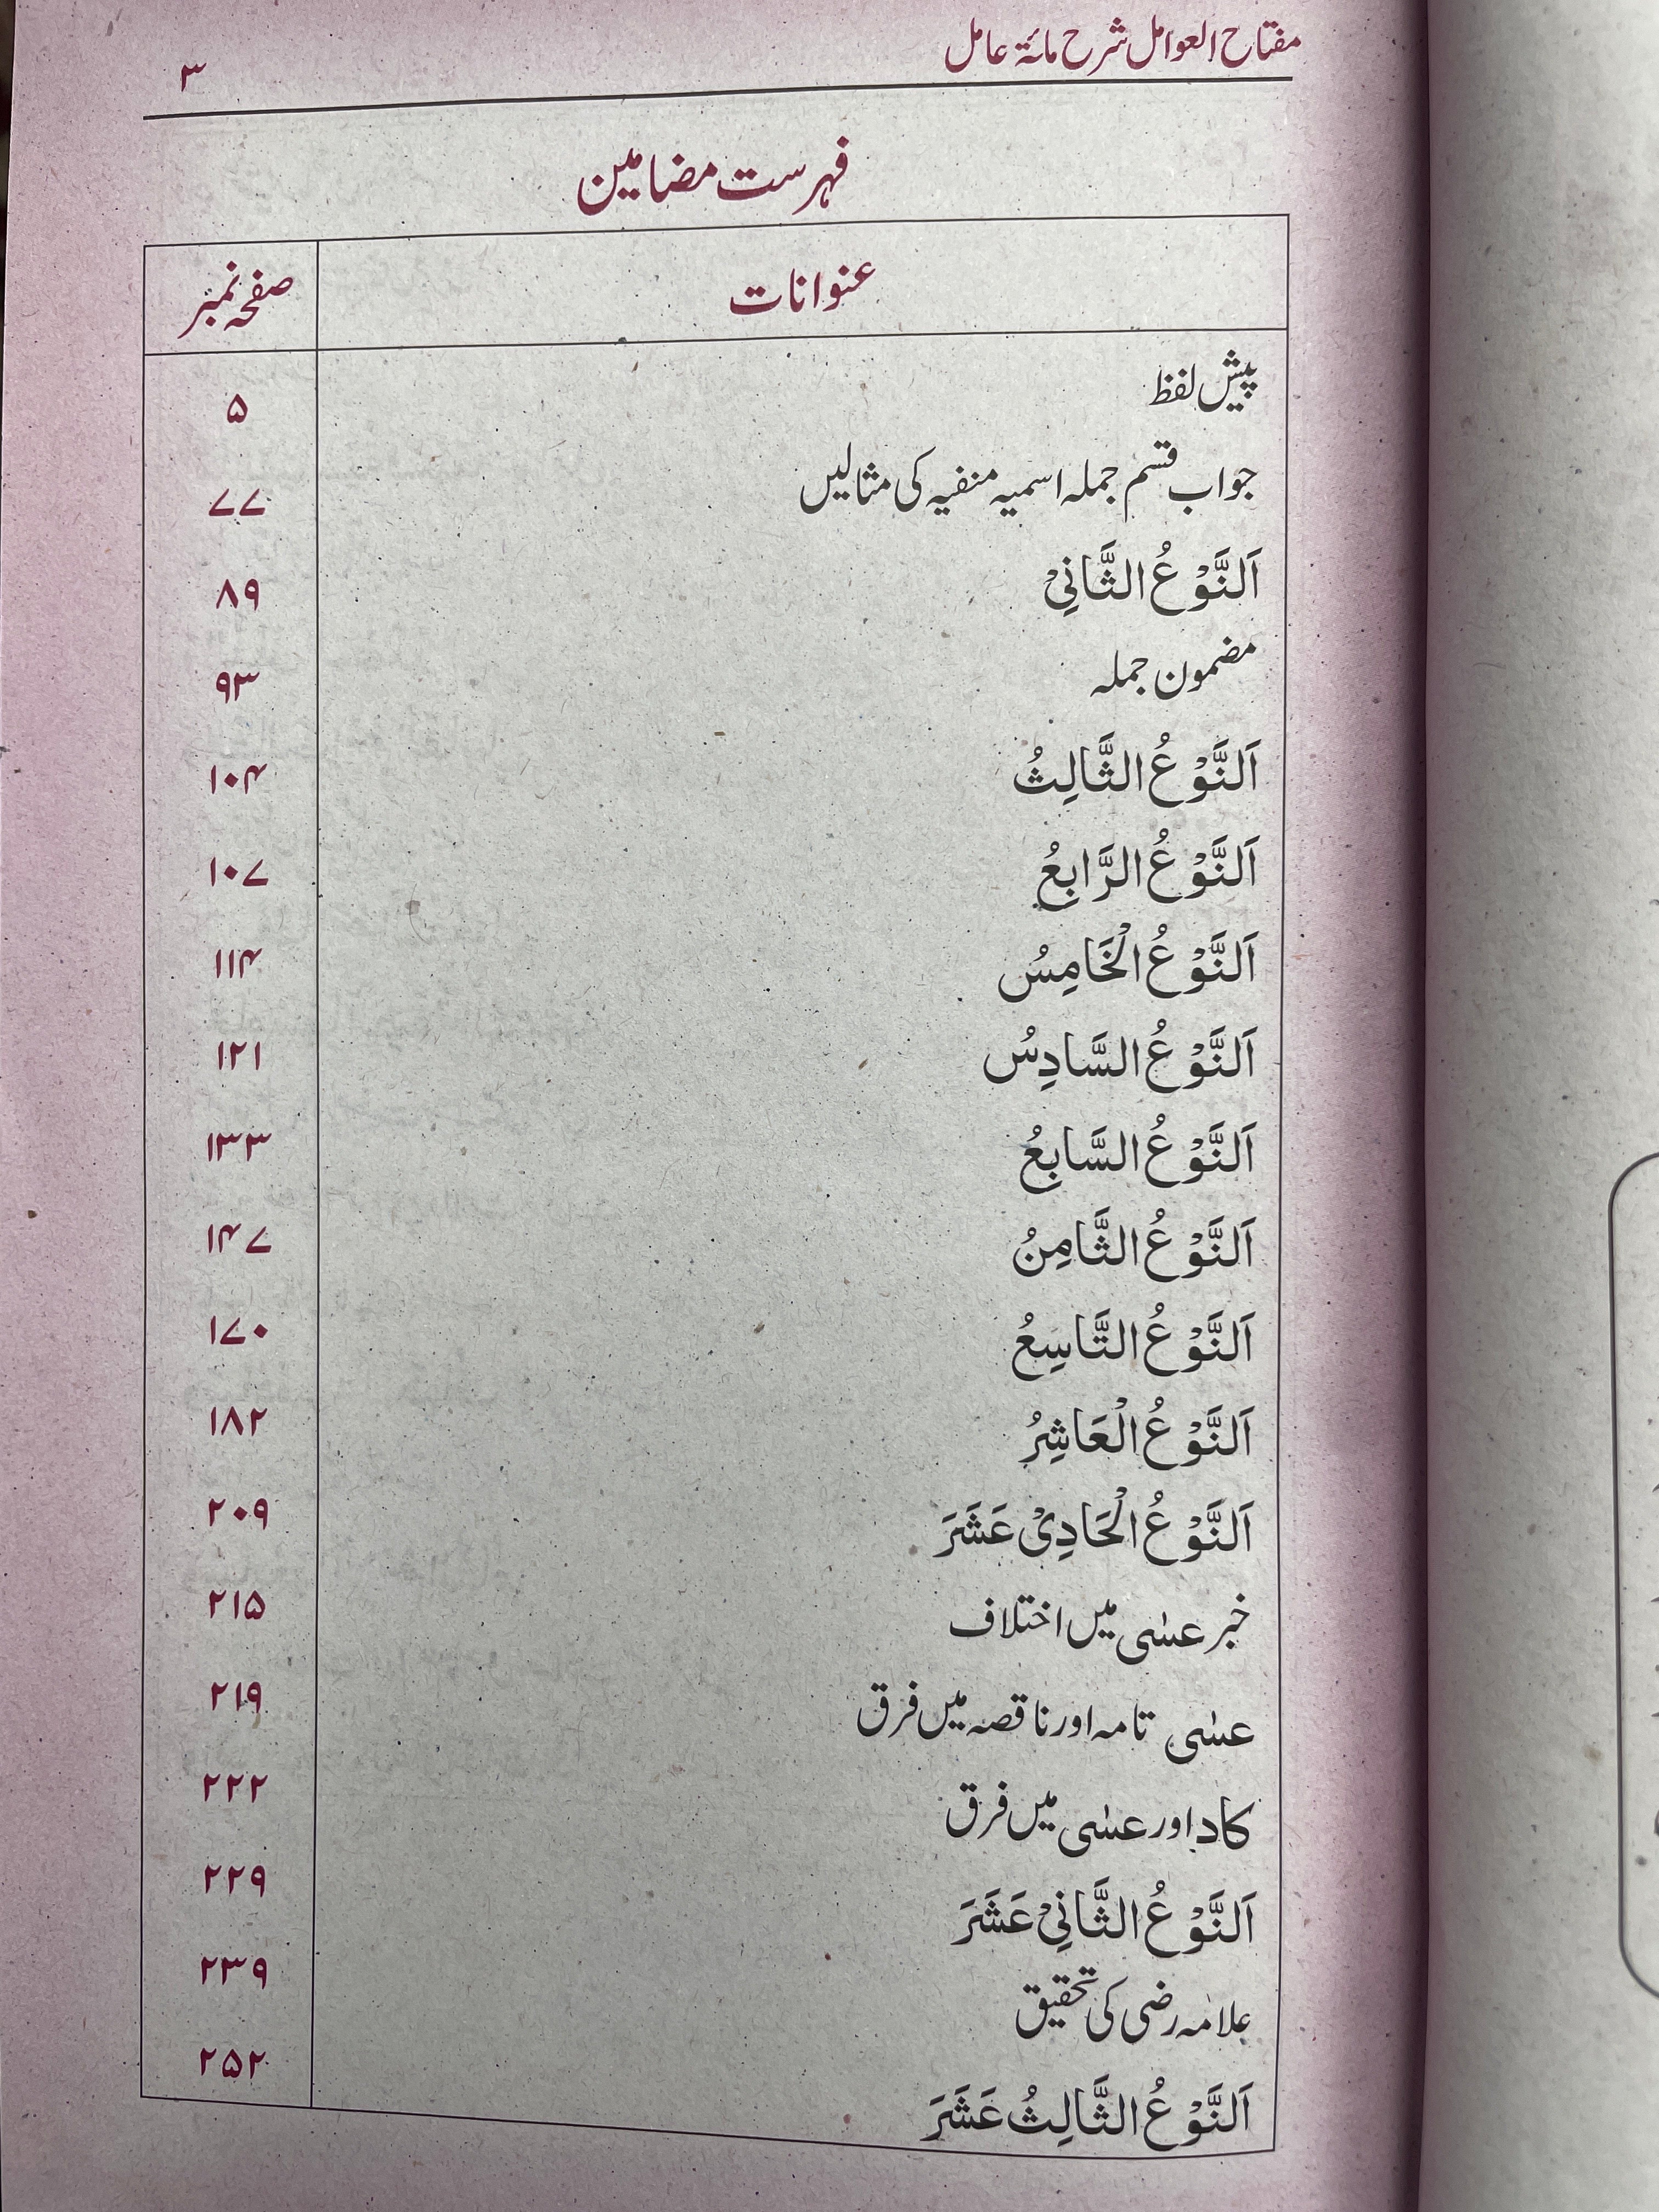 مفتاح العوامل شرح مائة عامل ۳
فہرست مضامین
عنوانات صفحہ نمبر
پیش لفظ ۵
جواب قسم جملہ اسمیہ منفیہ کی مثالیں ۷۷
اَلنَّوْعُ الثَّانِیْ ۸۹
مضمون جملہ ۹۳
اَلنَّوْعُ الثَّالِثُ ۱۰۴
اَلنَّوْعُ الرَّابِعُ ۱۰۷
اَلنَّوْعُ الْخَامِسُ ۱۱۴
اَلنَّوْعُ السَّادِسُ ۱۲۱
اَلنَّوْعُ السَّابِعُ ۱۳۳
اَلنَّوْعُ الثَّامِنُ ۱۴۷
اَلنَّوْعُ التَّاسِعُ ۱۷۰
اَلنَّوْعُ الْعَاشِرُ ۱۸۲
اَلنَّوْعُ الْحَادِیْ عَشَرَ ۲۰۹
خبر عسٰی میں اختلاف ۲۱۵
عسٰی تامہ اور ناقصہ میں فرق ۲۱۹
کاد اور عسٰی میں فرق ۲۲۲
اَلنَّوْعُ الثَّانِیْ عَشَرَ ۲۲۹
علامہ رضی کی تحقیق ۲۳۹
اَلنَّوْعُ الثَّالِثُ عَشَرَ ۲۵۲